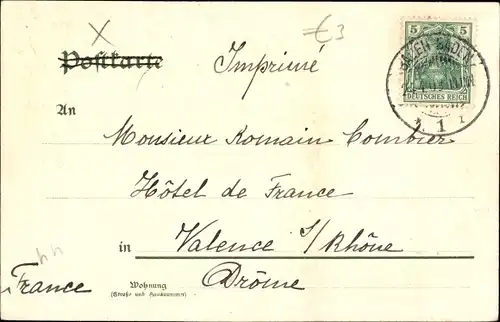 €3
5 5
DEUTSCHES REICH
BADEN-BADEN
1
Postkarte
Imprimé
An
Monsieur Romain Combier
Hôtel de France
in Valence s/Rhône
France
Drôme
Wohnung
(Straße und Hausnummer)
44